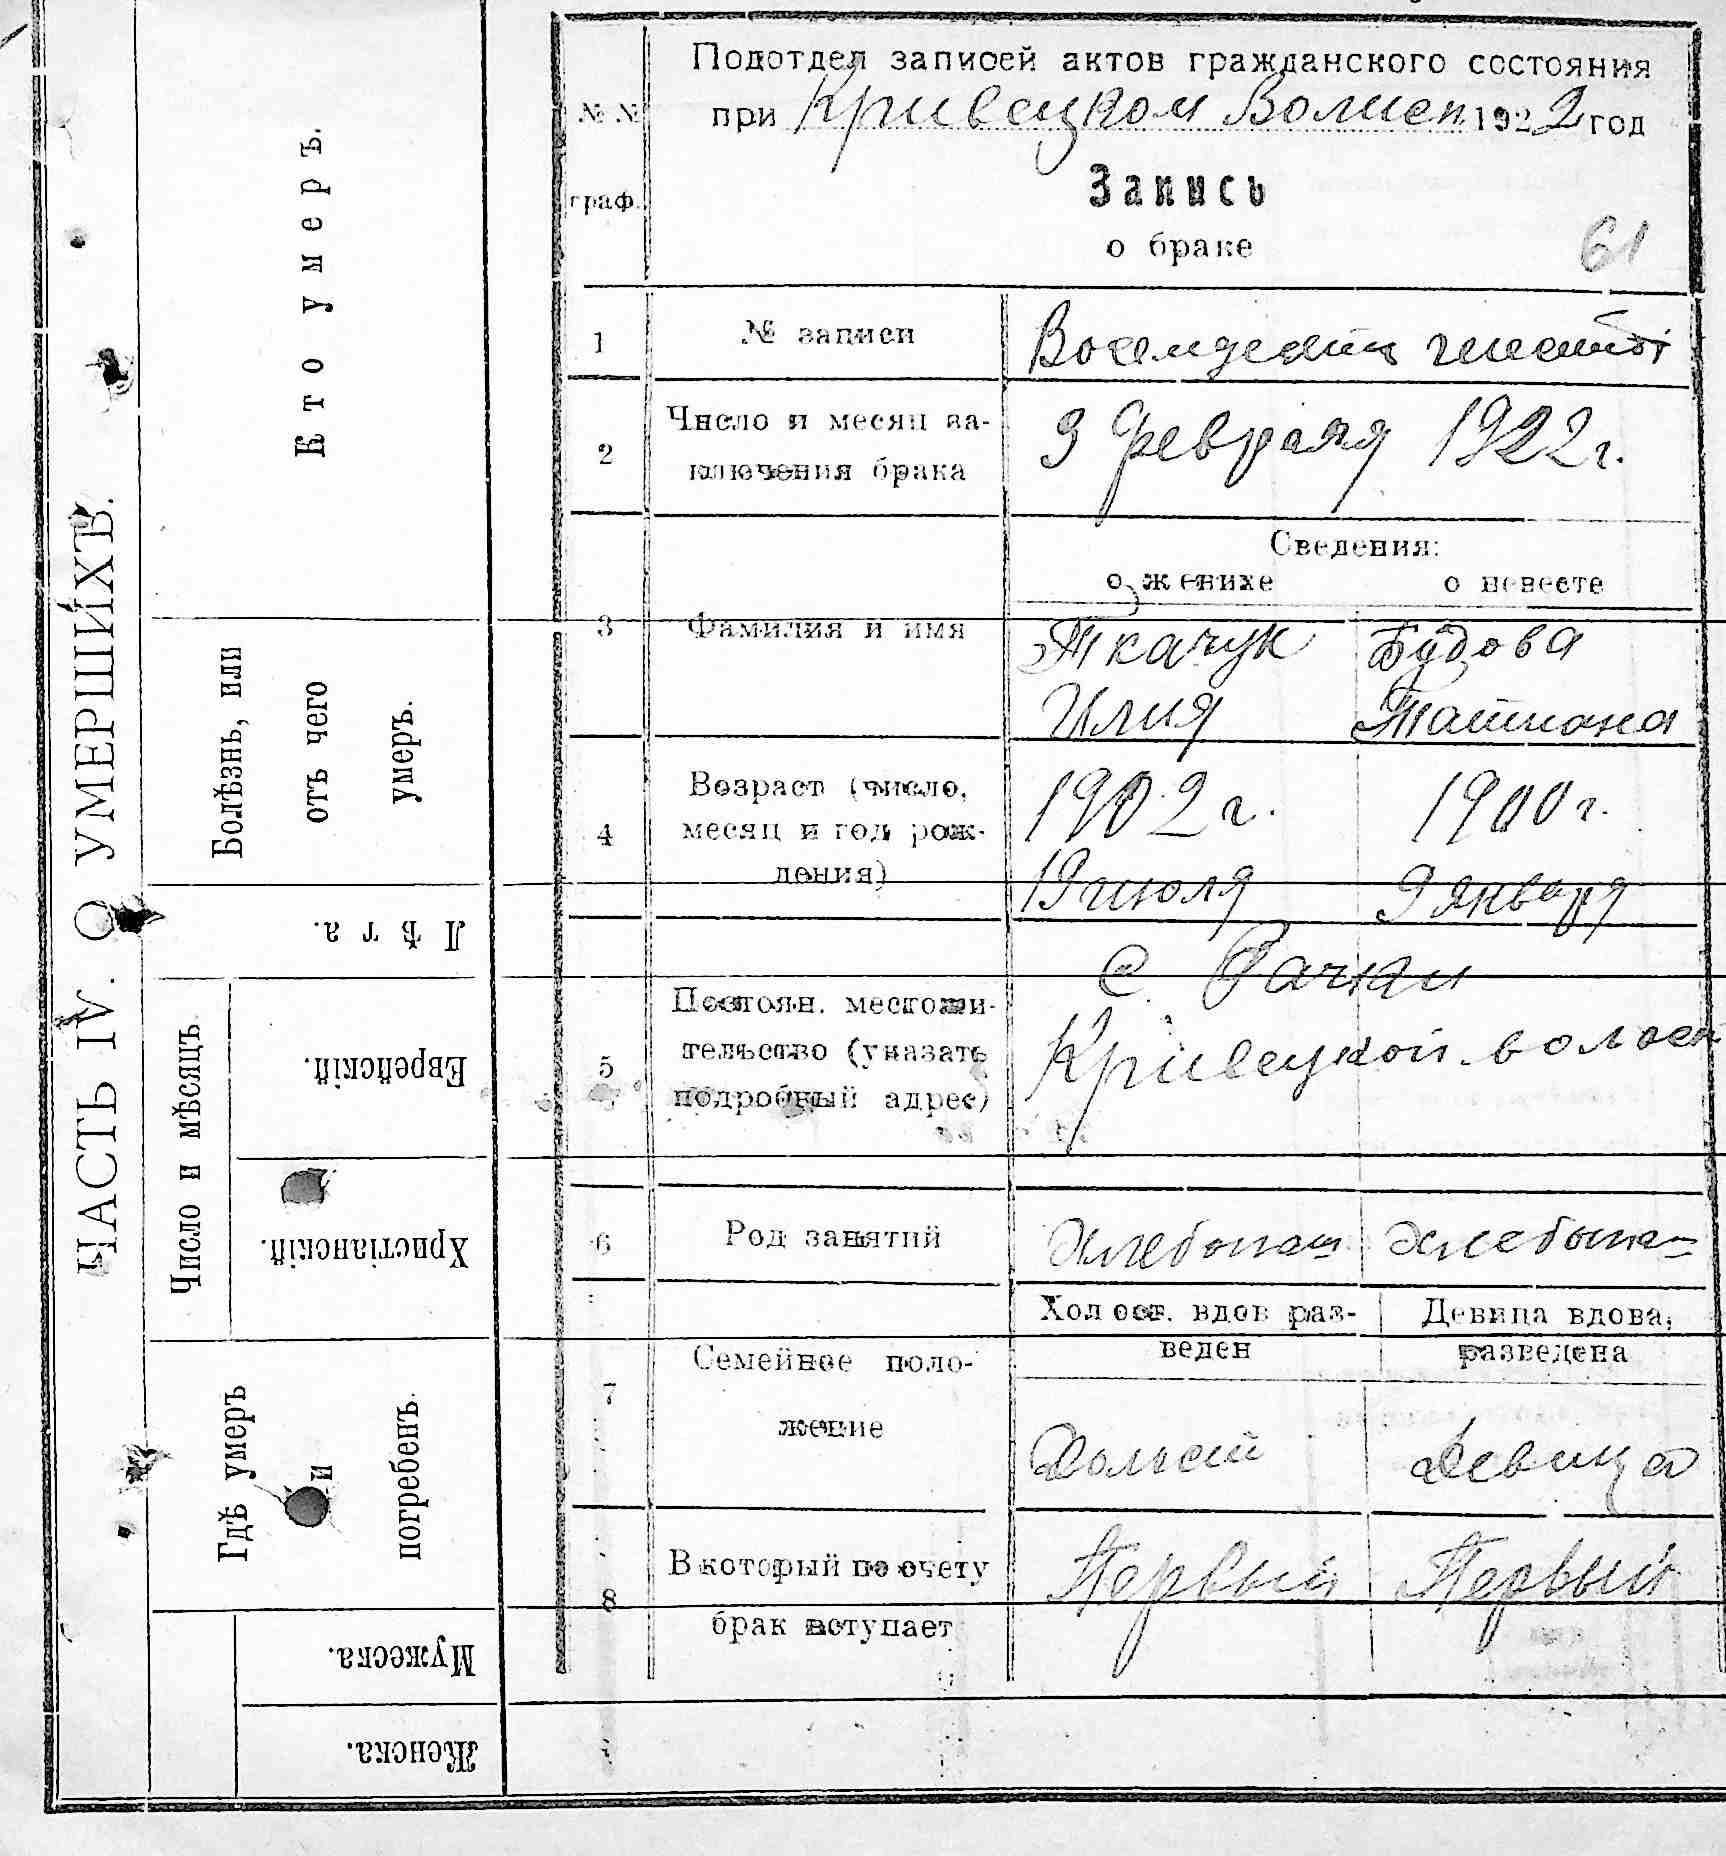 ЧАСТЬ IV. О УМЕРШИХЪ.
Кто умеръ.
Болѣзнь, или
отъ чего
умеръ.
Лѣта.
Число и мѣсяцъ
Еврейскій.
Христіанскій.
Гдѣ умеръ
и
погребенъ.
Мужеска.
Женска.
№ №
граф.
Подотдел записей актов гражданского состояния
при Кривецком Волисп. 1922 год
Запись
о браке
61
1 № записи Восемдесять шестой
2 Число и месяц за-
ключения брака
9 февраля 1922 г.
Сведения:
о женихе о невесте
3 Фамилия и имя
Ткачук Будова
Илия Татиана
4 Возраст (число,
месяц и год рож-
дения)
1902 г. 1900 г.
19 июля 9 января
5 Постоян. местожи-
тельство (указать
подробный адрес)
с. Рачки
Кривецкой волост
6 Род занятий Хлебопаш Хлебопаш
Холост. вдов раз-
веден
Девица вдова,
разведена
7 Семейное поло-
жение
Холост Девица
8 В который по счету
брак вступает
Первый Первый